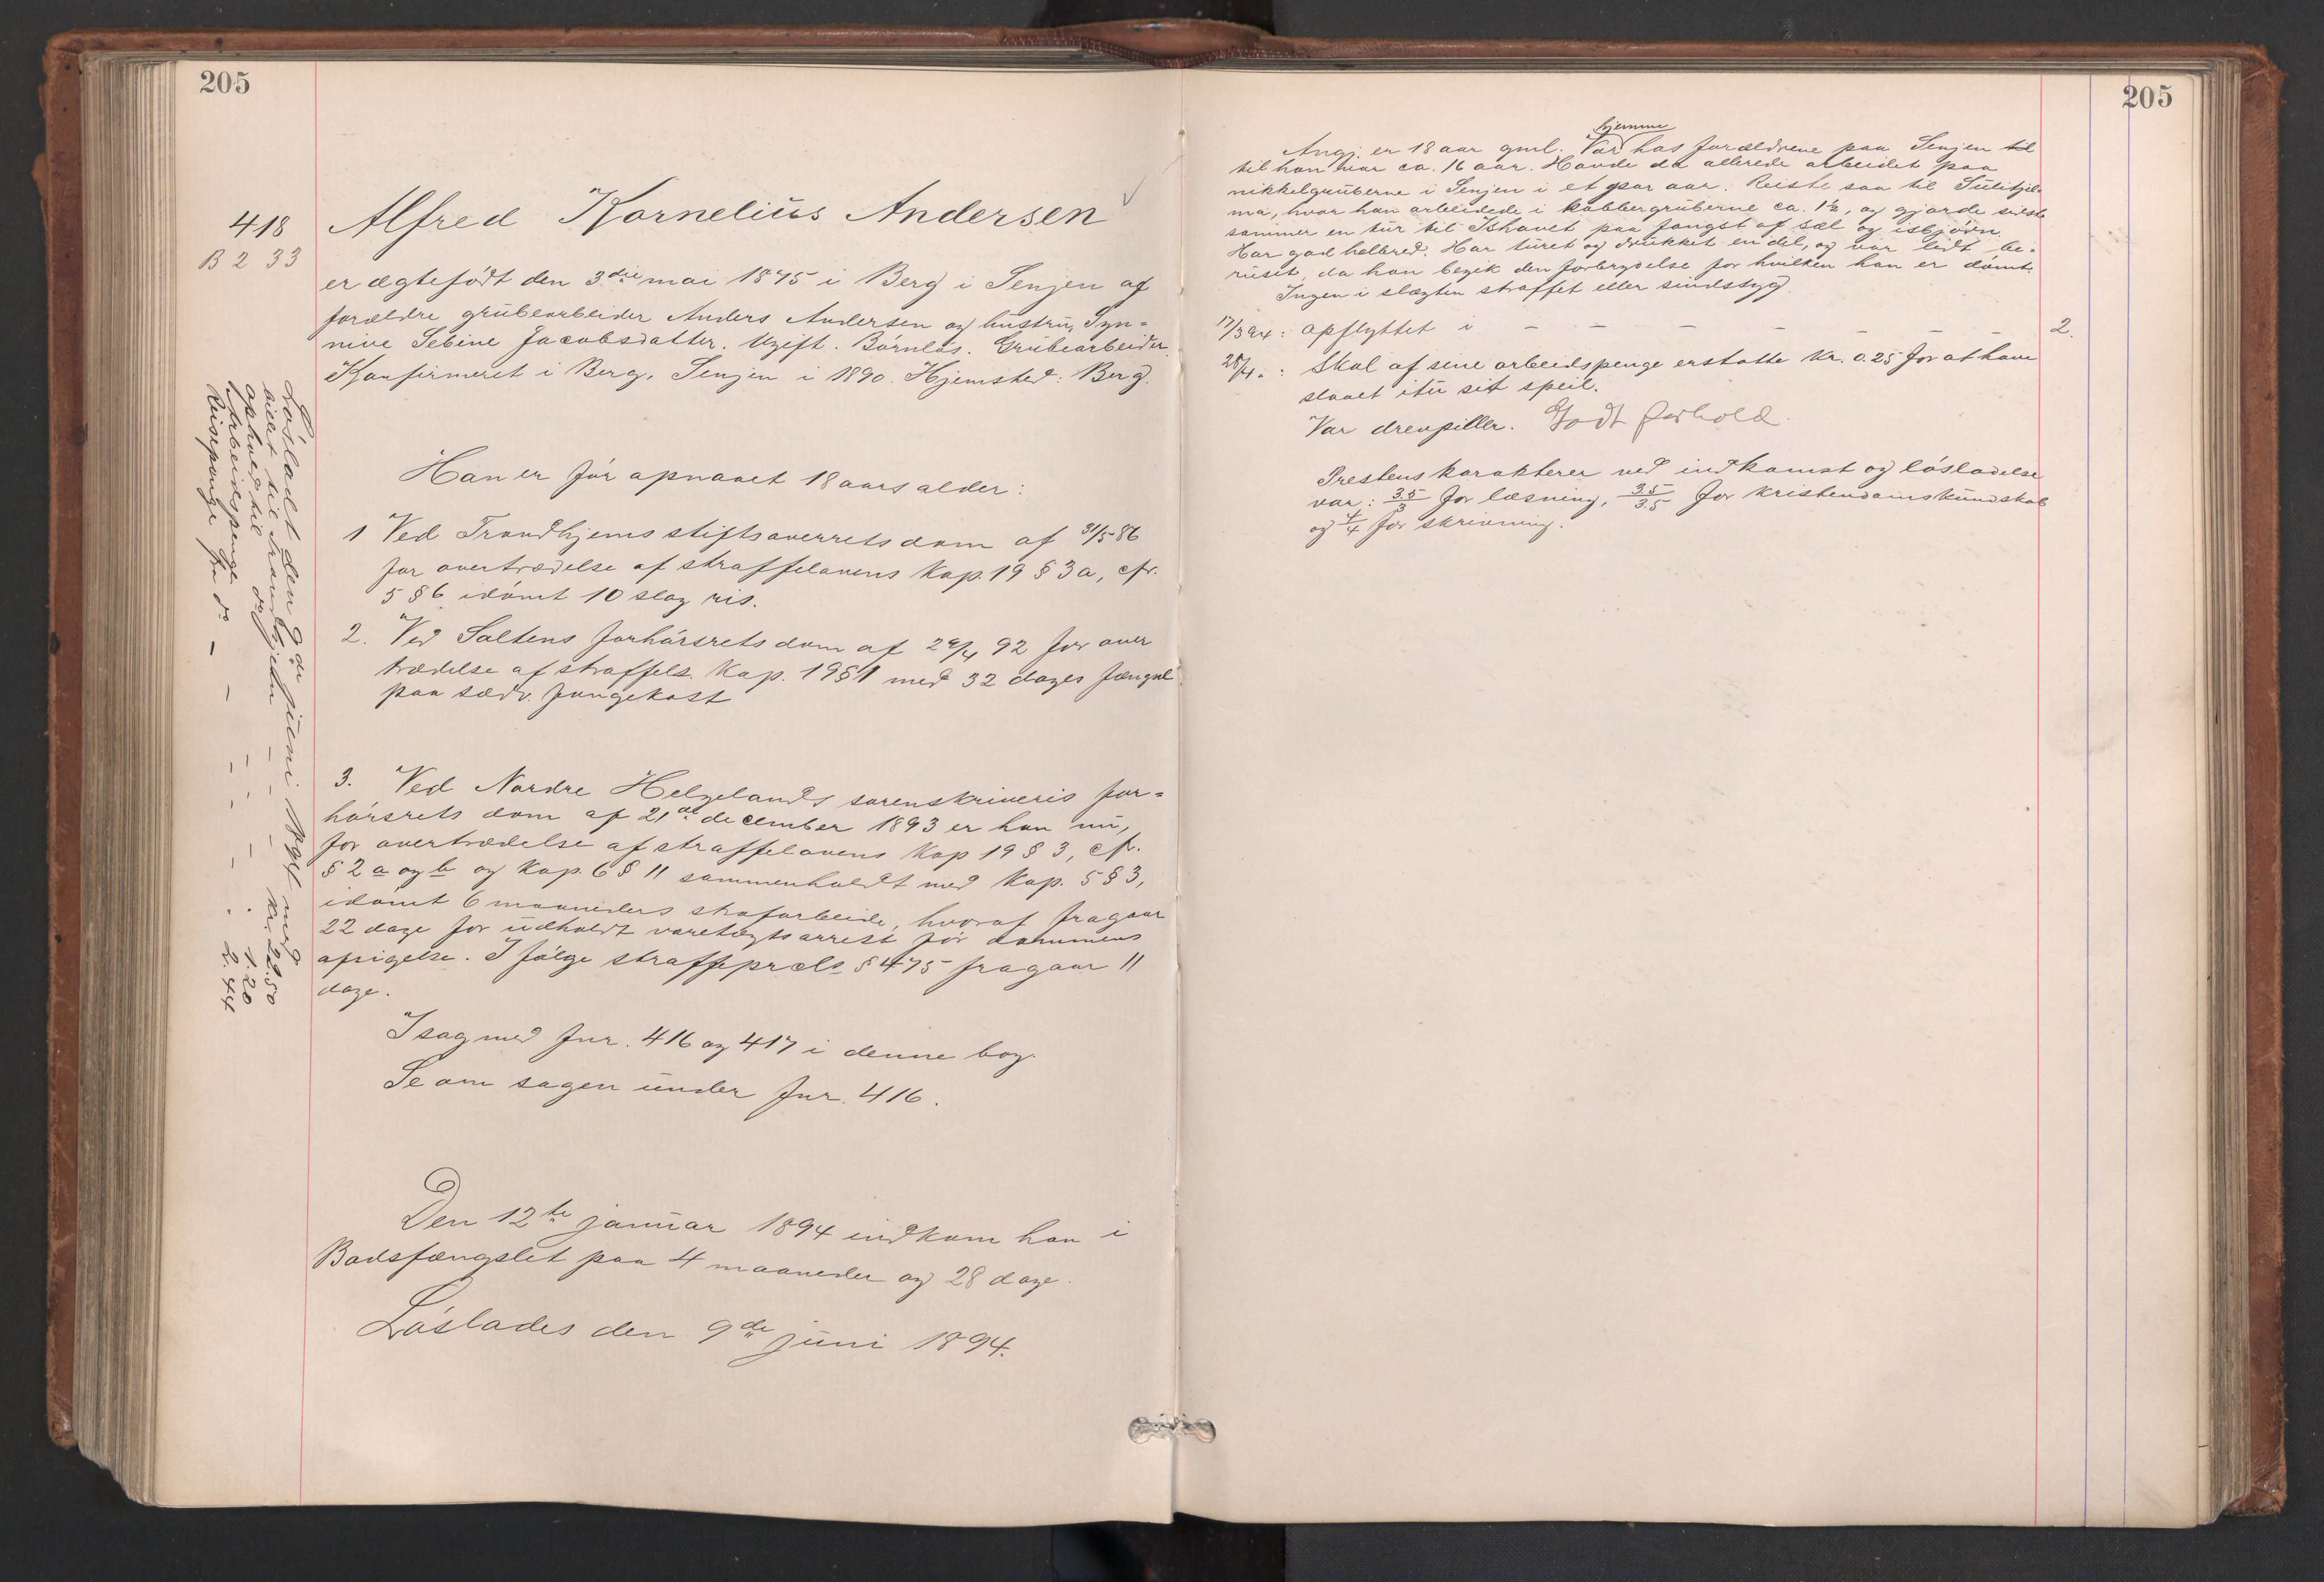 205
418
B 2 33
Alfred Kornelius Andersen
er ægtefödt den 3die mai 1875 i Berg i Senjen af
forældre grubearbeider Anders Andersen og hustru, Syn=
nive Sebine Jacobsdatter. Ugift. Börnlös. Grubearbeider.
Konfirmeret i Berg, Senjen i 1890. Hjemsted: Berg.
Han er för opnaaet 18 aars alder:
1 Ved Trondhjems stiftsoverretsdom af 31/5 86
for overtrædelse af straffelovens Kap. 19 § 3 a, cfr.
5 § 6 idömt 10 slag ris.
2. Ved Saltens forhörsrets dom af 29/4 92 for over
trædelse af straffels. Kap. 19 § 1 med 32 dages fængsel
paa sædv. fangekost
3. Ved Nordre Helgelands sorenskriveris for=
hörsrets dom af 21de december 1893 er han nu,
for overtrædelse af straffelovens Kap 19 § 3, cfr.
§ 2 a og b og Kap. 6 § 11 sammenholdt med Kap. 5 § 3,
idömt 6 maaneders strafarbeide, hvoraf fragaar
22 dage for udholdt varetægtsarrest för dommens
afsigelse. I fölge straffeprcls § 475 fragaar 11
dage.
I sag med fnr. 416 og 417 i denne bog.
Se om sagen under fnr. 416.
Den 12te januar 1894 indkom han i
Bodsfængslet paa 4 maaneder og 28 dage.
Löslades den 9de juni 1894.
Lösladt den 9de juni 1894 med
billet til Trondhjem - - - Kr. 22.50
ophold til do - - - 1.20
Arbeidspenge
Reisepenge fra do - - - - - 2.44
205
hjemme
Angj. er 18 aar gml. Var hos forældrene paa Senjen til
til han var ca. 16 aar. Havde da allerede arbeidet paa
nikkelgruberne i Senjen i et par aar. Reiste saa til Sulitjel=
ma, hvor han arbeidede i kobbergruberne ca. 1½, og gjorde sidste
sommer en tur til Ishavet paa fangst af sæl og isbjörn.
Har god helbred. Har turet og drukket en del, og var lidt be=
ruset, da han begik den forbrydelse for hvilken han er dömt.
Ingen i slægten straffet eller sindssyg.
17/3 94: opflyttet i - - - - - - 2.
28/4 " : Skal af sine arbeidspenge erstatte Kr. 0.25 for at have
slaaet itu sit speil.
Var drevpiller. Godt forhold.
Prestens karakterer ved indkomst og lösladelse
var: 3.5/3 for læsning, 3.5/3.5 for kristendomskundskab
og 4/4 for skrivning.